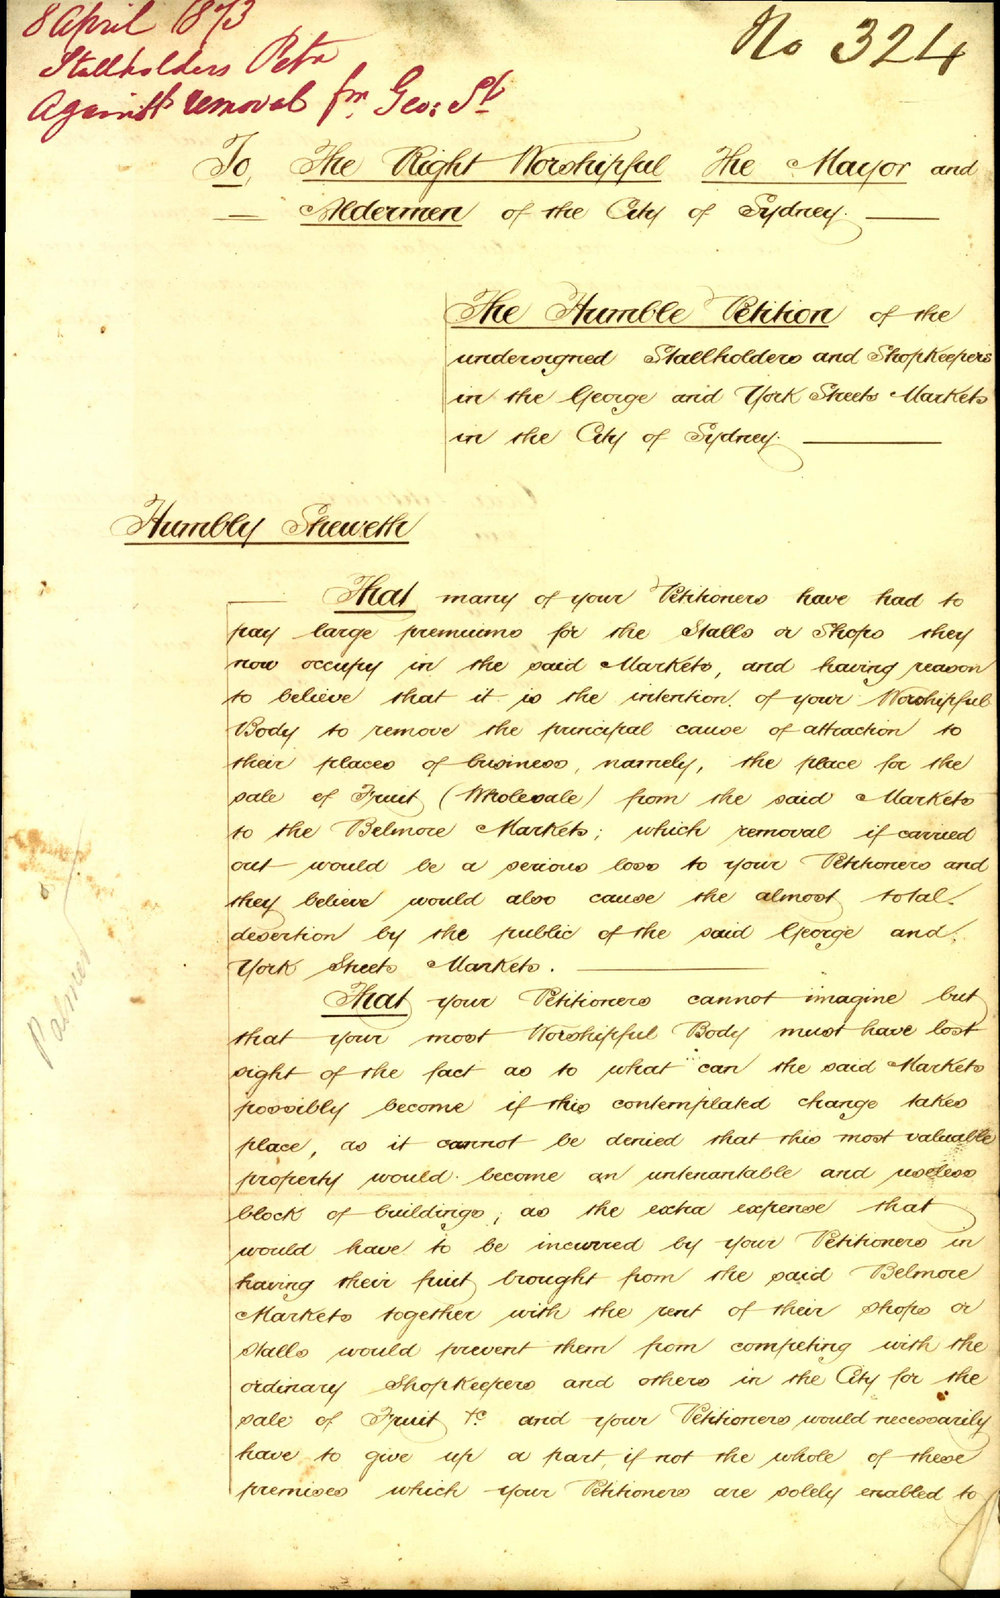 8 April 1873
Stallholders Petn
Against removal fm Geo: St
No 324
To, The Right Worshipful The Mayor and
Aldermen of the City of Sydney.
The Humble Petition of the
undersigned Stallholders and Shopkeepers
in the George and York Streets Markets
in the City of Sydney.
Humbly Sheweth
That many of your Petitioners have had to
pay large premiums for the Stalls or Shops they
now occupy in the said Markets, and having reason
to believe that it is the intention of your Worshipful
Body to remove the principal cause of attraction to
their places of business, namely, the place for the
sale of Fruit (Wholesale) from the said Markets
to the Belmore Markets; which removal if carried
out would be a serious loss to your Petitioners and
they believe would also cause the almost total
desertion by the public of the said George and
York Streets Markets.
That your Petitioners cannot imagine but
that your most Worshipful Body must have lost
sight of the fact as to what can the said Markets
possibly become if this contemplated change takes
place, as it cannot be denied that this most valuable
property would become an untenantable and useless
block of buildings; as the extra expense that
would have to be incurred by your Petitioners in
having their fruit brought from the said Belmore
Markets together with the rent of their shops or
stalls would prevent them from competing with the
ordinary Shopkeepers and others in the City for the
sale of Fruit &c and your Petitioners would necessarily
have to give up a part, if not the whole of these
premises which your Petitioners are solely enabled to
Palmer